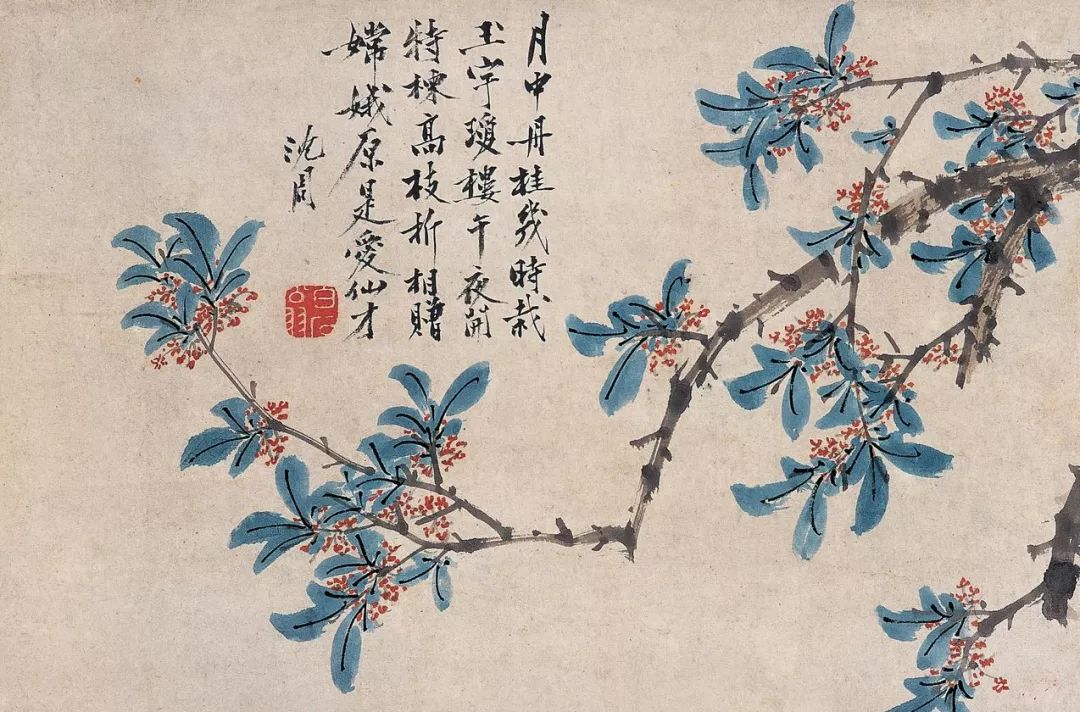 月中丹桂几時栽
玉宇瓊樓午夜開
特揀高枝折相贈
嫦娥原是愛仙才
沈周